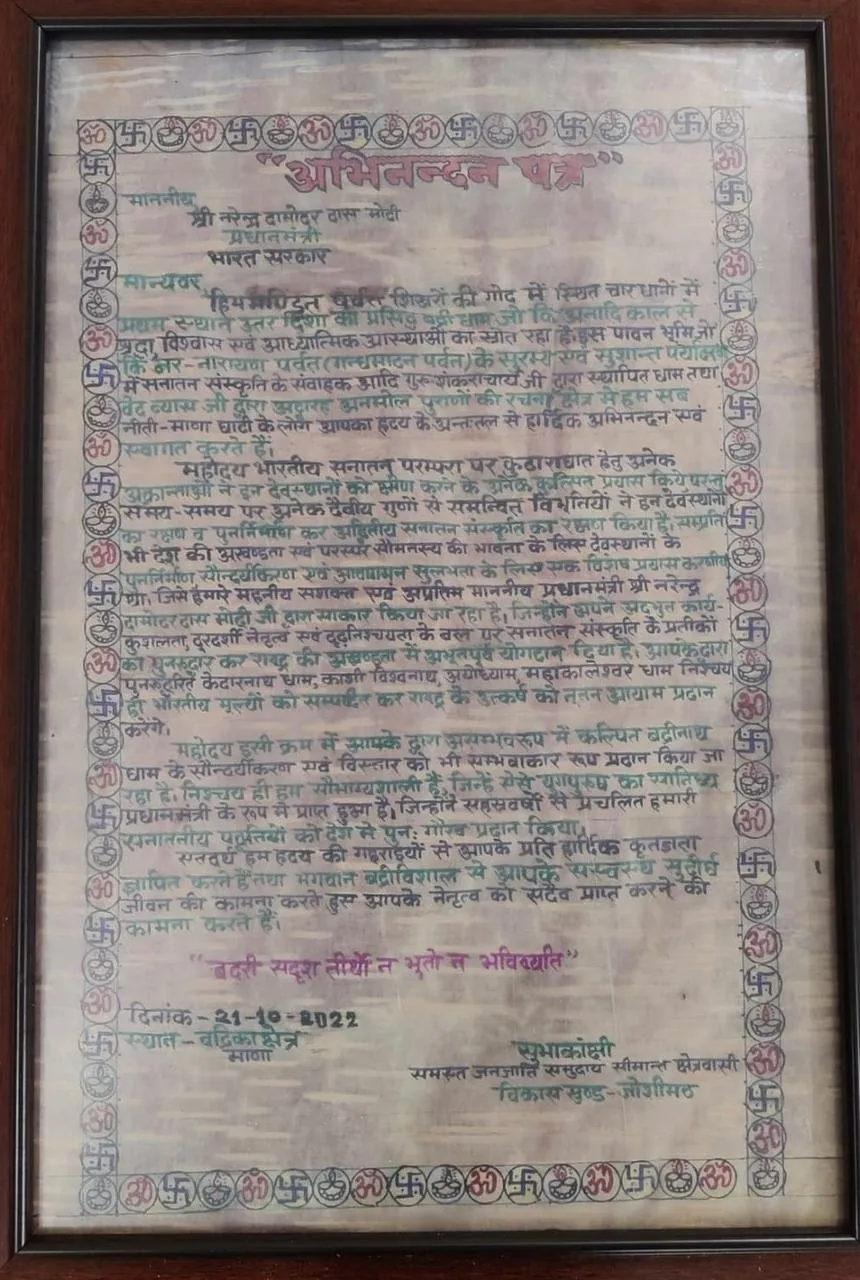 "अभिनन्दन पत्र"
माननीय,
श्री नरेन्द्र दामोदर दास मोदी
प्रधानमंत्री
भारत सरकार
मान्यवर,
हिममण्डित पर्वत शिखरों की गोद में स्थित चार धामों में
प्रथम स्थान उत्तर दिशा का प्रसिद्ध बद्री धाम जो कि अनादि काल से
श्रद्धा विश्वास एवं आध्यात्मिक आस्थाओं का स्रोत रहा है। इस पावन भूमि जो
कि नर-नारायण पर्वत (गन्धमादन पर्वत) के सुरम्य एवं सुशान्त
में सनातन संस्कृति के संवाहक आदि गुरु शंकराचार्य जी द्वारा स्थापित धाम तथा
वेद व्यास जी द्वारा अट्ठारह अनमोल पुराणों की रचना क्षेत्र से हम सब
नीती-माणा घाटी के लोग आपका हृदय के अन्तःतल से हार्दिक अभिनन्दन एवं
स्वागत करते हैं।
महोदय भारतीय सनातन परम्परा पर कुठाराघात हेतु अनेक
आक्रान्ताओं ने इन देवस्थानों को करने के अनेक कुत्सित प्रयास किये परन्तु
समय-समय पर अनेक दैवीय गुणों से समन्वित विभूतियों ने इन देवस्थानों
का रक्षण व पुनर्निर्माण कर अद्वितीय सनातन संस्कृति का रक्षण किया है। सम्प्रति
भी देश की अखण्डता एवं परस्पर सौमनस्य की भावना के लिए देवस्थानों के
पुनर्निर्माण सौन्दर्यीकरण एवं आवागमन सुलभता के लिए एक विशेष प्रयास करणीय
था। जिसे हमारे महनीय सशक्त एवं अप्रतिम माननीय प्रधानमंत्री श्री नरेन्द्र
दामोदर दास मोदी जी द्वारा साकार किया जा रहा है। जिन्होंने अपने अदभुत कार्य-
कुशलता, दूरदर्शी नेतृत्व एवं दृढ़निश्चयता के बल पर सनातन संस्कृति के प्रतीकों
का पुनरुद्धार कर राष्ट्र की अखण्डता में अभूतपूर्व योगदान दिया है। आपके द्वारा
पुनरुद्धारित केदारनाथ धाम, काशी विश्वनाथ, अयोध्याम, महाकालेश्वर धाम निश्चय
ही भारतीय मूल्यों को सम्पादित कर राष्ट्र के उत्कर्ष को नूतन आयाम प्रदान
करेंगे।
महोदय इसी क्रम में आपके द्वारा असम्भवरूप में कल्पित बद्रीनाथ
धाम के सौन्दर्यीकरण एवं विस्तार को भी सम्भवाकार रूप प्रदान किया जा
रहा है। निश्चय ही हम सौभाग्यशाली हैं, जिन्हें ऐसे युगपुरुष का सानिध्य
प्रधानमंत्री के रूप में प्राप्त हुआ है। जिन्होंने सहस्रवर्षों से प्रचलित हमारी
सनातनीय पद्धतियों को देश में पुनः गौरव प्रदान किया।
एतदर्थ हम हृदय की गहराईयों से आपके प्रति हार्दिक कृतज्ञता
ज्ञापित करते हैं तथा भगवान बद्रीविशाल से आपके सुदीर्घ
जीवन की कामना करते हुए आपके नेतृत्व को सदैव प्राप्त करने की
कामना करते हैं।
"बदरी सदृश तीर्थो न भूतो न भविष्यति"
दिनांक - 21-10-2022
स्थान - बद्रिकाक्षेत्र
माणा
सुभाकांक्षी
समस्त जनजाति समुदाय सीमान्त क्षेत्रवासी
विकास खुण्ड - जोशीमठ